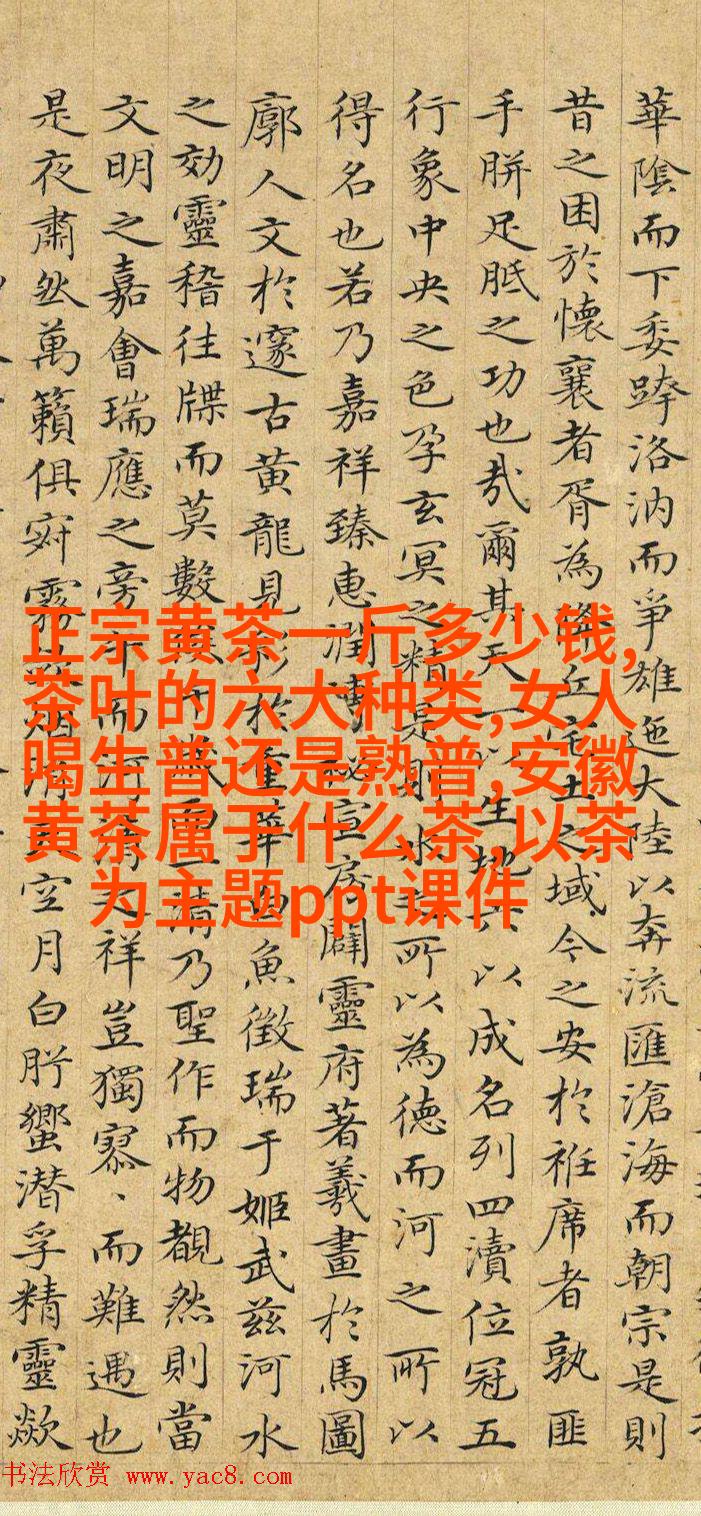 華陰而下委跨洛汭而爭雄迤大陸以奔流匯滄海而朝宗是則
昔之困於懷襄者胥為降丘宅土之域今之安於袵席者孰匪
手胼足胝之功也哉爾其天一以生地六以成名列四瀆位冠五
行象中央之色孕玄冥之精是則水所以為德而河之所以
得名也若乃嘉祥臻惠潤溥秘宣房闢靈府著羲畫於馬圖
廓人文於邃古黃龍見彩於重華白魚徵瑞于姬武茲河水
之効靈稽往牒而莫數千歲而一清乃聖作而物覩然則當
文明之嘉會瑞應之旁午而河清之祥豈獨寥、而難遇也
是夜肅然萬籟俱寂霧烟消空月白肸蠁潜孚精靈歘
正宗黄茶一斤多少钱,
茶叶的六大种类,女人
喝生普还是熟普,安徽
黄茶属于什么茶,以茶
为主题ppt课件
书法欣赏 www.yac8.com